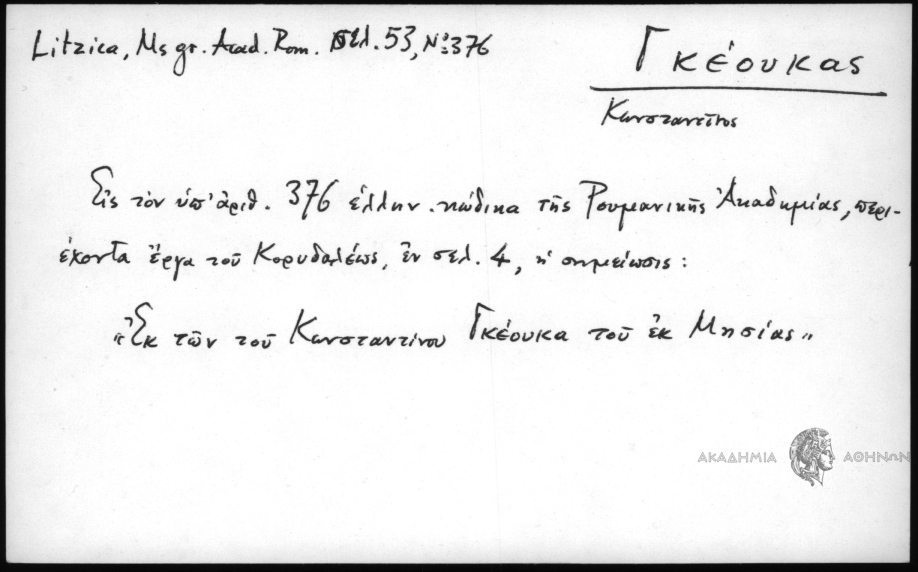 Litzica, Ms gr. Acad. Rom. σελ. 53, Nº 376
Γκέουκας
Κωνσταντῖνος
Εἰς τὸν ὑπ' ἀριθ. 376 ἑλλην. κώδικα τῆς Ρουμανικῆς Ἀκαδημίας, περι-
έχοντα ἔργα τοῦ Κορυδαλέως, ἐν σελ. 4, ἡ σημείωσις:
"Ἐκ τῶν τοῦ Κωνσταντίνου Γκέουκα τοῦ ἐκ Μησίας"
ΑΚΑΔΗΜΙΑ ΑΘΗΝΩΝ